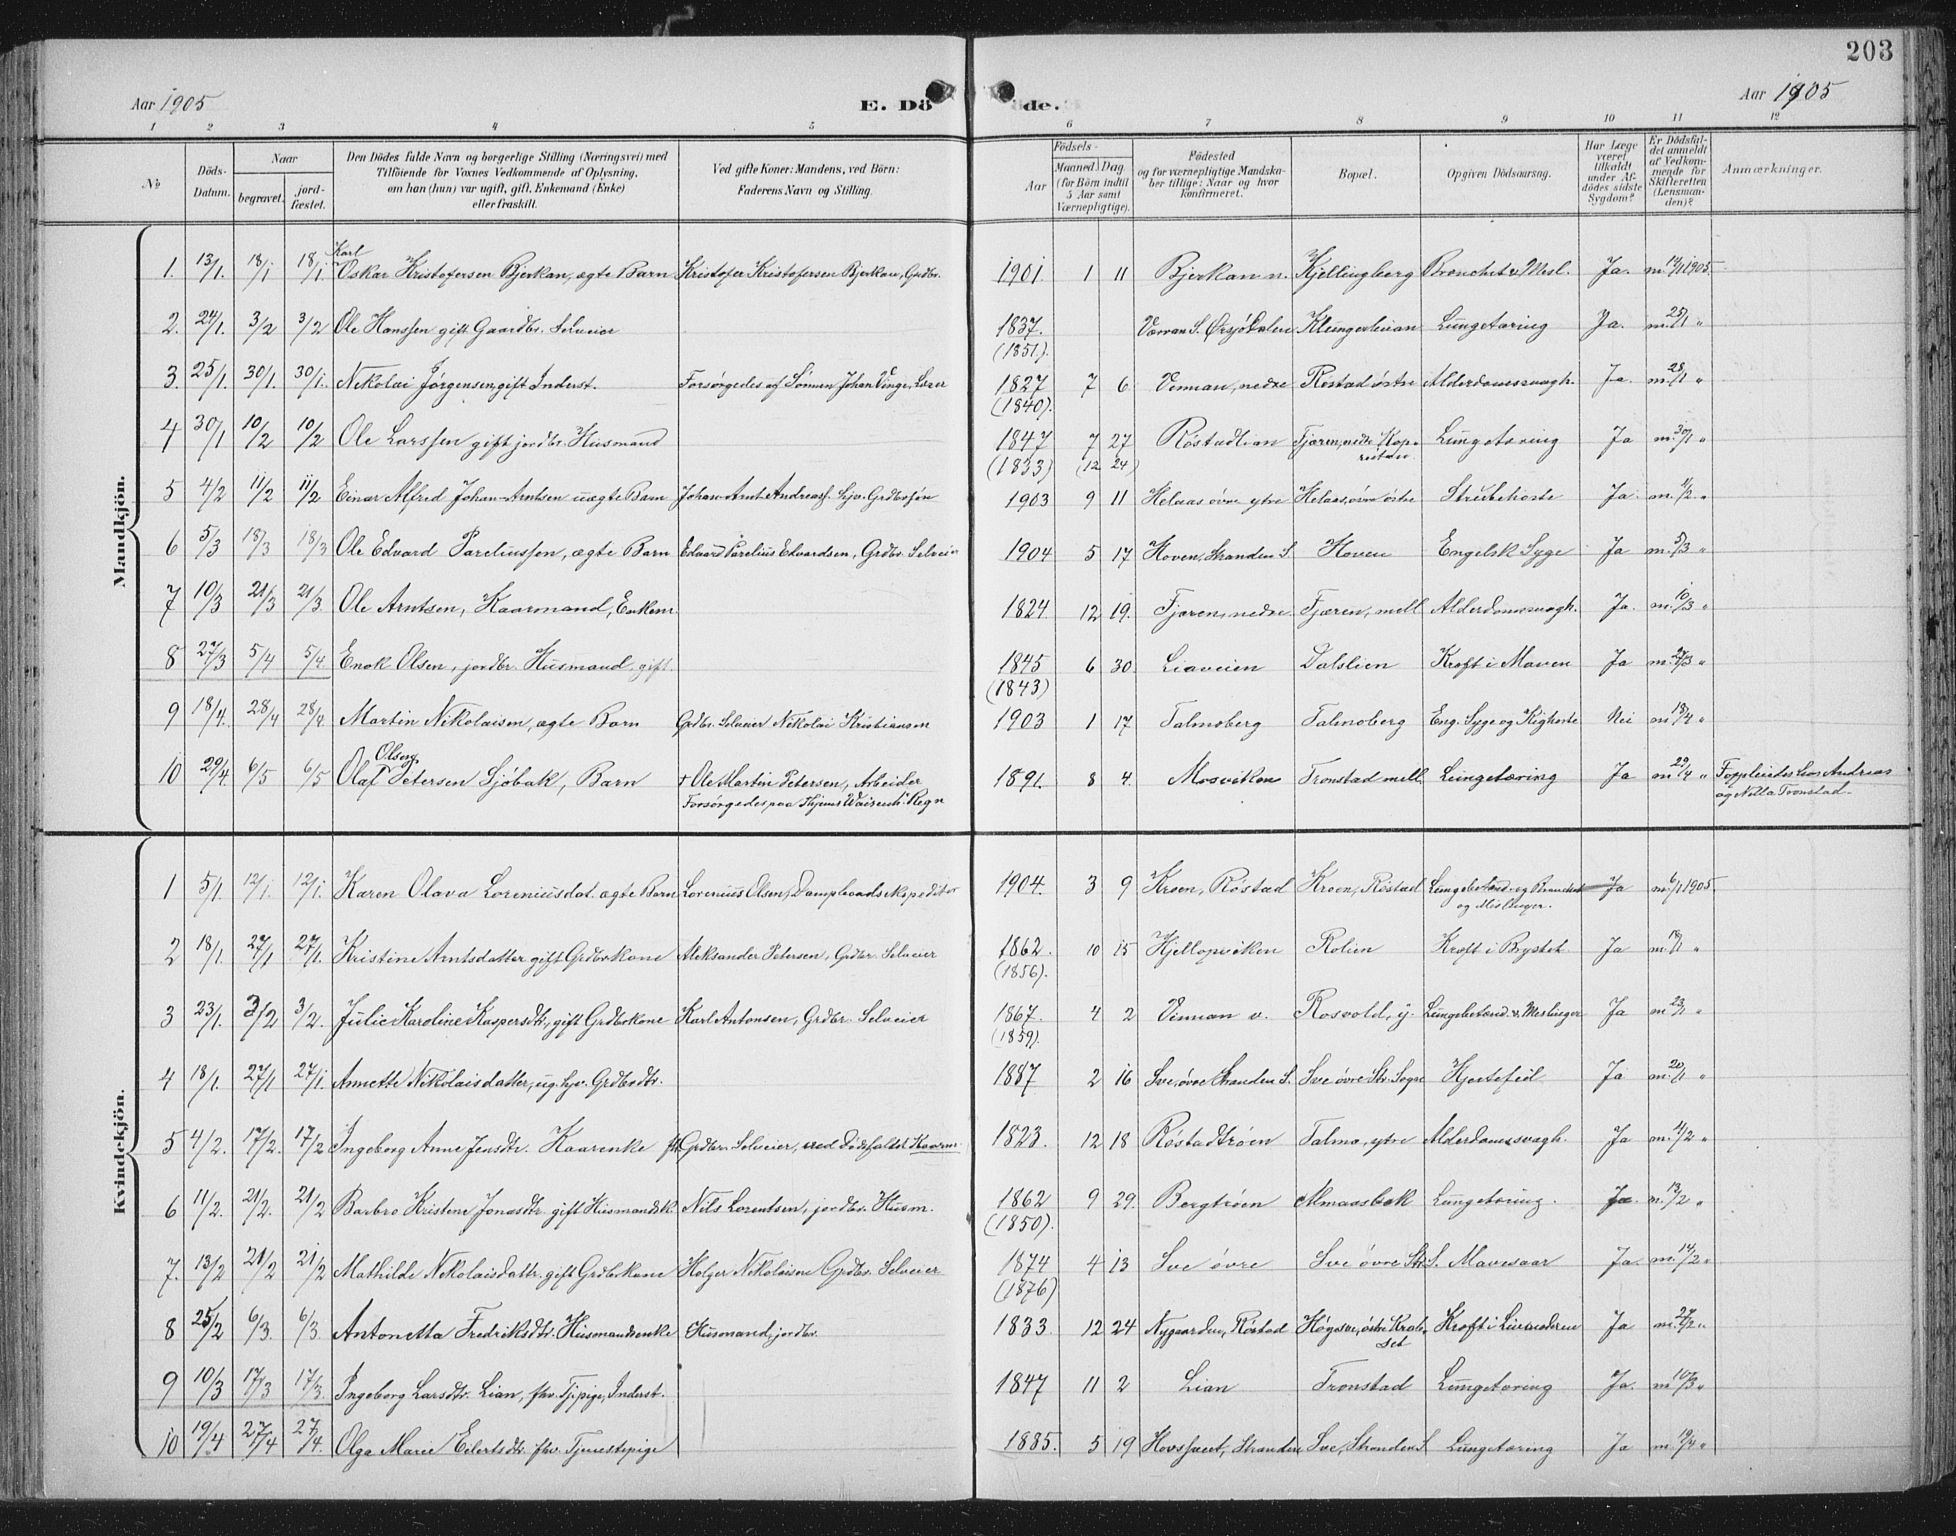 203
Aar 1905
E. Dö
de.
Aar 1905
1 2 3 4 5 6 7 8 9 10 11 12
№
Döds-Datum.
Naar
begravet.
jord-fæstet.
Den Dödes fulde Navn og borgerlige Stilling (Næringsvei) med
Tilföiende for Voxnes Vedkommende af Oplysning,
om han (hun) var ugift, gift, Enkemand (Enke)
eller fraskilt.
Ved gifte Koner: Mandens, ved Börn:
Faderens Navn og Stilling.
Födsels-
Aar
Maaned. Dag.
(for Börn indtil
5 Aar samt
Værnepligtige).
Födested
og for værnepligtige Mandska-
ber tillige: Naar og hvor
konfirmeret.
Bopæl.
Opgiven Dödsaarsag.
Har Læge
været
tilkaldt
under Af-
dödes sidste
Sygdom?
Er Dödsfal-
det anmeldt
af Vedkom-
mende for
Skifteretten
(Lensman-
den)?
Anmærkninger.
Mandkjön.
Karl
1. 13/1. 18/1 18/1 Oskar Kristofersen Bjerkan, ægte Barn Kristofer Kristofersen Bjerkan, Grdbr. 1901 1 11 Bjerkan n. Kjellingberg Bronchit v. Mesl. Ja. m. 1905
2. 24/1. 3/2 3/2 Ole Hanssen gift Gaardbr. Selveier 1837. Klungerleiran Lungetæring Ja. m. 25/1 "
(1851).
3. 25/1. 30/1. 30/1. Nikolai Jørgensen, gift Inderst. Forsørgedes af Sønnen Johan Vinge, Lærer 1827 7 6 Vennan, nedre Røstad østre Alderdomssvagh. Ja m. 28/1 "
(1840).
4 30/1 10/2 10/2 Ole Larssen gift jordbr. Husmand 1847 7 27 Røstadlian Tjæren, nedre Lungetæring Ja m. 30/1 "
(1833) (12 24)
5 4/2 11/2 11/2 Einar Alfred Johan-Arntsen uægte Barn Johan-Arnt Andreass. hjv. Grdbrsøn 1903 9 11 Helaas øvre ytre Helaas, øvre østre Strubehoste Ja. m. "
6 5/3 18/3 18/3 Ole Edvard Pareliussen, ægte Barn Edvard Parelius Edvardsen, Grdbr. Selveier 1904 5 17 Hoven, Stranden S. Hoven Engelsk Syge Ja m. 5/3 "
7 10/3 21/3 21/3. Ole Arntsen, Kaarmand, Enkem. 1824 12 19. Fjæren, nedre Fjæren, mell. Alderdomssvagh. Ja. m. 10/3 "
8 27/3 5/4 5/4. Enok Olsen, jordbr. Husmand, gift. 1845 6 30. Liaveien Dalslien Kræft i Maven Ja m. 27/3 "
(1843)
9 18/4. 28/4 28/4 Martin Nikolaisen, ægte Barn Grdbr. Selveier Nikolai Kristiansen 1903 1 17 Talmoberg Talmoberg Eng. Syge og Kighoste Nei m. 18/4 "
Olsen
10 29/4. 6/5 6/5 Olaf Petersen Sjöbak, Barn † Ole Martin Petersen, Arbeider 1891. 8 4. Mosviken Tronstad mell. Lungetæring Ja m. 29/4 " Andreas
Forsørgedes paa Regn og Tronstad
Kvindekjön.
1 5/1. 12/1. 12/1. Karen Olava Loreniusdat. ægte Barn Lorenius Olsen, Dampbaadsekspeditør 1904. 3 9 Kroen, Røstad Kroen, Røstad Lungebetænd. og Bronchit Ja m. 6/1 1905
og Meslinger.
2 18/1. 27/1 27/1. Kristine Arntsdatter gift Grdbrkone Aleksander Petersen, Grdbr. Selveier 1862. 10 15 Hjellopviken Rolien Kræft i Brystet Ja m. "
(1856).
3 23/1. 3/2 3/2. Julie Karoline Kaspersdtr., gift Grdbrkone Karl Antonsen, Grdbr. Selveier 1867. 4 2 Vennan v. Rosvold, y. Lungebetænd. v. Meslinger Ja m. 23/1 "
(1859).
4 18/1. 27/1 27/1. Annette Nikolaisdatter, ug. hjv. Grdbrdtr. 1887 2 16 Sve, øvre Stranden S. Sve øvre Str. Sogn Hjertefeil Ja m. 20/1 "
5 4/2. 17/2. 17/2 Ingeborg Anne Jensdtr. Kaarenke fh. Grdbr. Selveier, ved Dødsfaldet Kaarm. 1823. 12 18 Røstadtrøen Talmo, ytre Alderdomssvagh. Ja m. 4/2 "
6 11/2. 21/2. 21/2 Barbro Kristene Jonasdtr. gift Husmandsk. Nils Lorentsen, jordbr. Husm. 1862 9 29. Bergtrøen Almaasbak Lungetæring. Ja. m. 13/2 "
(1850).
7. 13/2 21/2 21/2 Mathilde Nikolaisdattr. gift Grdbrkone Holger Nikolaisen Grdbr. Selveier 1874 4 13 Sve øvre Sve øvre Str. S. Mavesaar Ja. m. 14/2 "
(1876)
8 25/2 6/3. 6/3. Antonetta Fredriksdtr. Husmandsenke Husmand, jordbr. 1833. 12 24 Nygaarden, Røstad Kræft i Ja m. 27/2 "
9 10/3 17/3 17/3. Ingeborg Larsdtr. Lian, fhv. Tjpige, Inderst. 1847 11 2 Lian Tronstad Lungetæring Ja. m. 10/3 "
10 19/4 27/4 27/4. Olga Marie Eilertsdtr. fhv. Tjenestepige 1885. 5 19 Stranden Sve, Stranden S. Lungetæring Ja m. 19/4 "